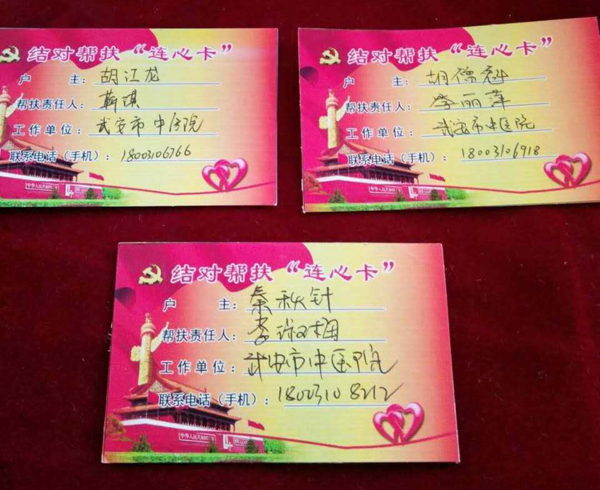 结对帮扶“连心卡”
户主：胡江龙
帮扶责任人：靳琪
工作单位：武安市中医院
联系电话（手机）：18003106766
结对帮扶“连心卡”
户主：胡僧
帮扶责任人：李丽萍
工作单位：武安市中医院
联系电话（手机）：18003106918
结对帮扶“连心卡”
户主：秦秋针
帮扶责任人：李海梅
工作单位：武安市中医院
联系电话（手机）：18003108212